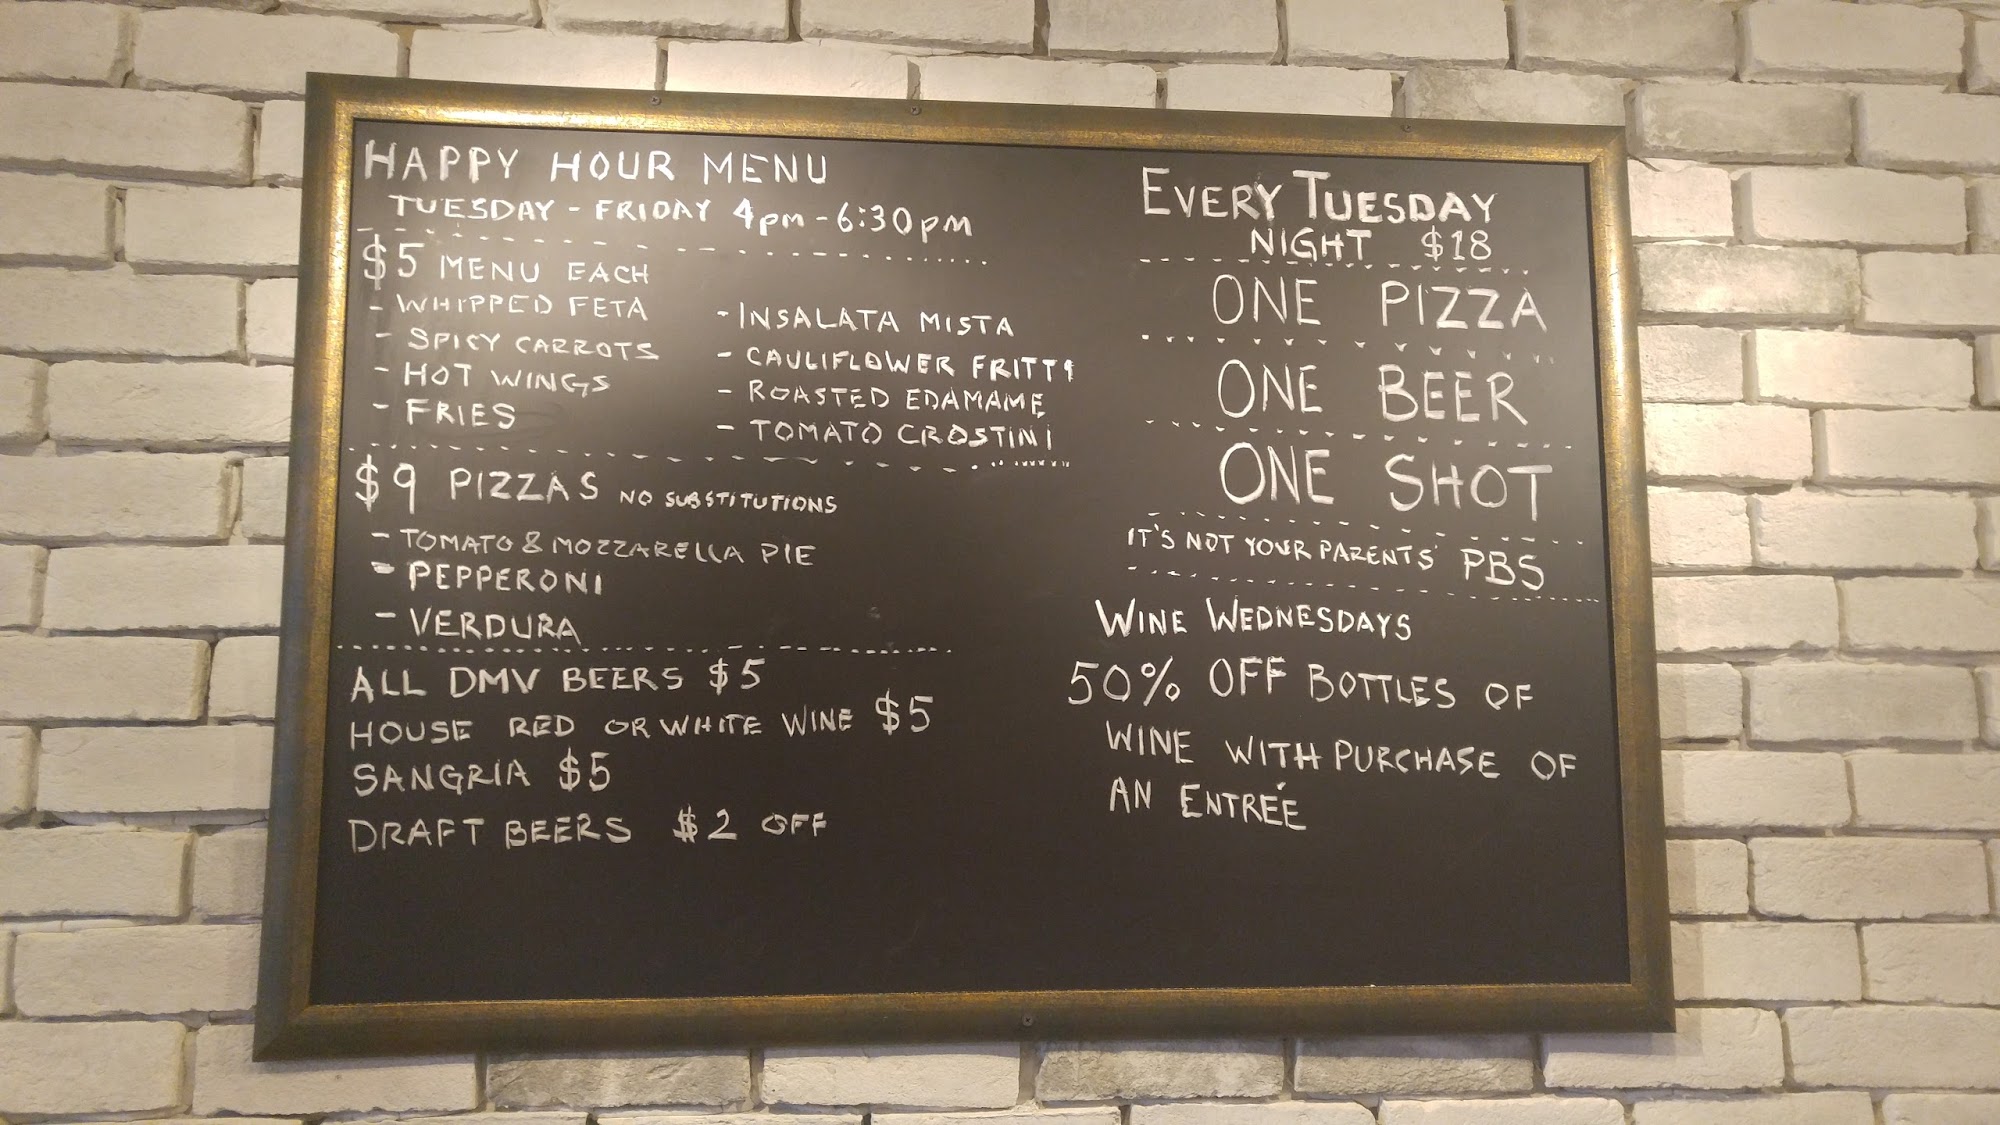 HAPPY HOUR MENU
TUESDAY - FRIDAY 4pm - 6:30pm
$5 MENU EACH
- WHIPPED FETA
- SPICY CARROTS
- HOT WINGS
- FRIES
- INSALATA MISTA
- CAULIFLOWER FRITTI
- ROASTED EDAMAME
- TOMATO CROSTINI
$9 PIZZAS NO SUBSTITUTIONS
- TOMATO & MOZZARELLA PIE
- PEPPERONI
- VERDURA
ALL DMV BEERS $5
HOUSE RED OR WHITE WINE $5
SANGRIA $5
DRAFT BEERS $2 OFF
EVERY TUESDAY
NIGHT $18
ONE PIZZA
ONE BEER
ONE SHOT
IT'S NOT YOUR PARENTS' PBS
WINE WEDNESDAYS
50% OFF BOTTLES OF
WINE WITH PURCHASE OF
AN ENTRÉE